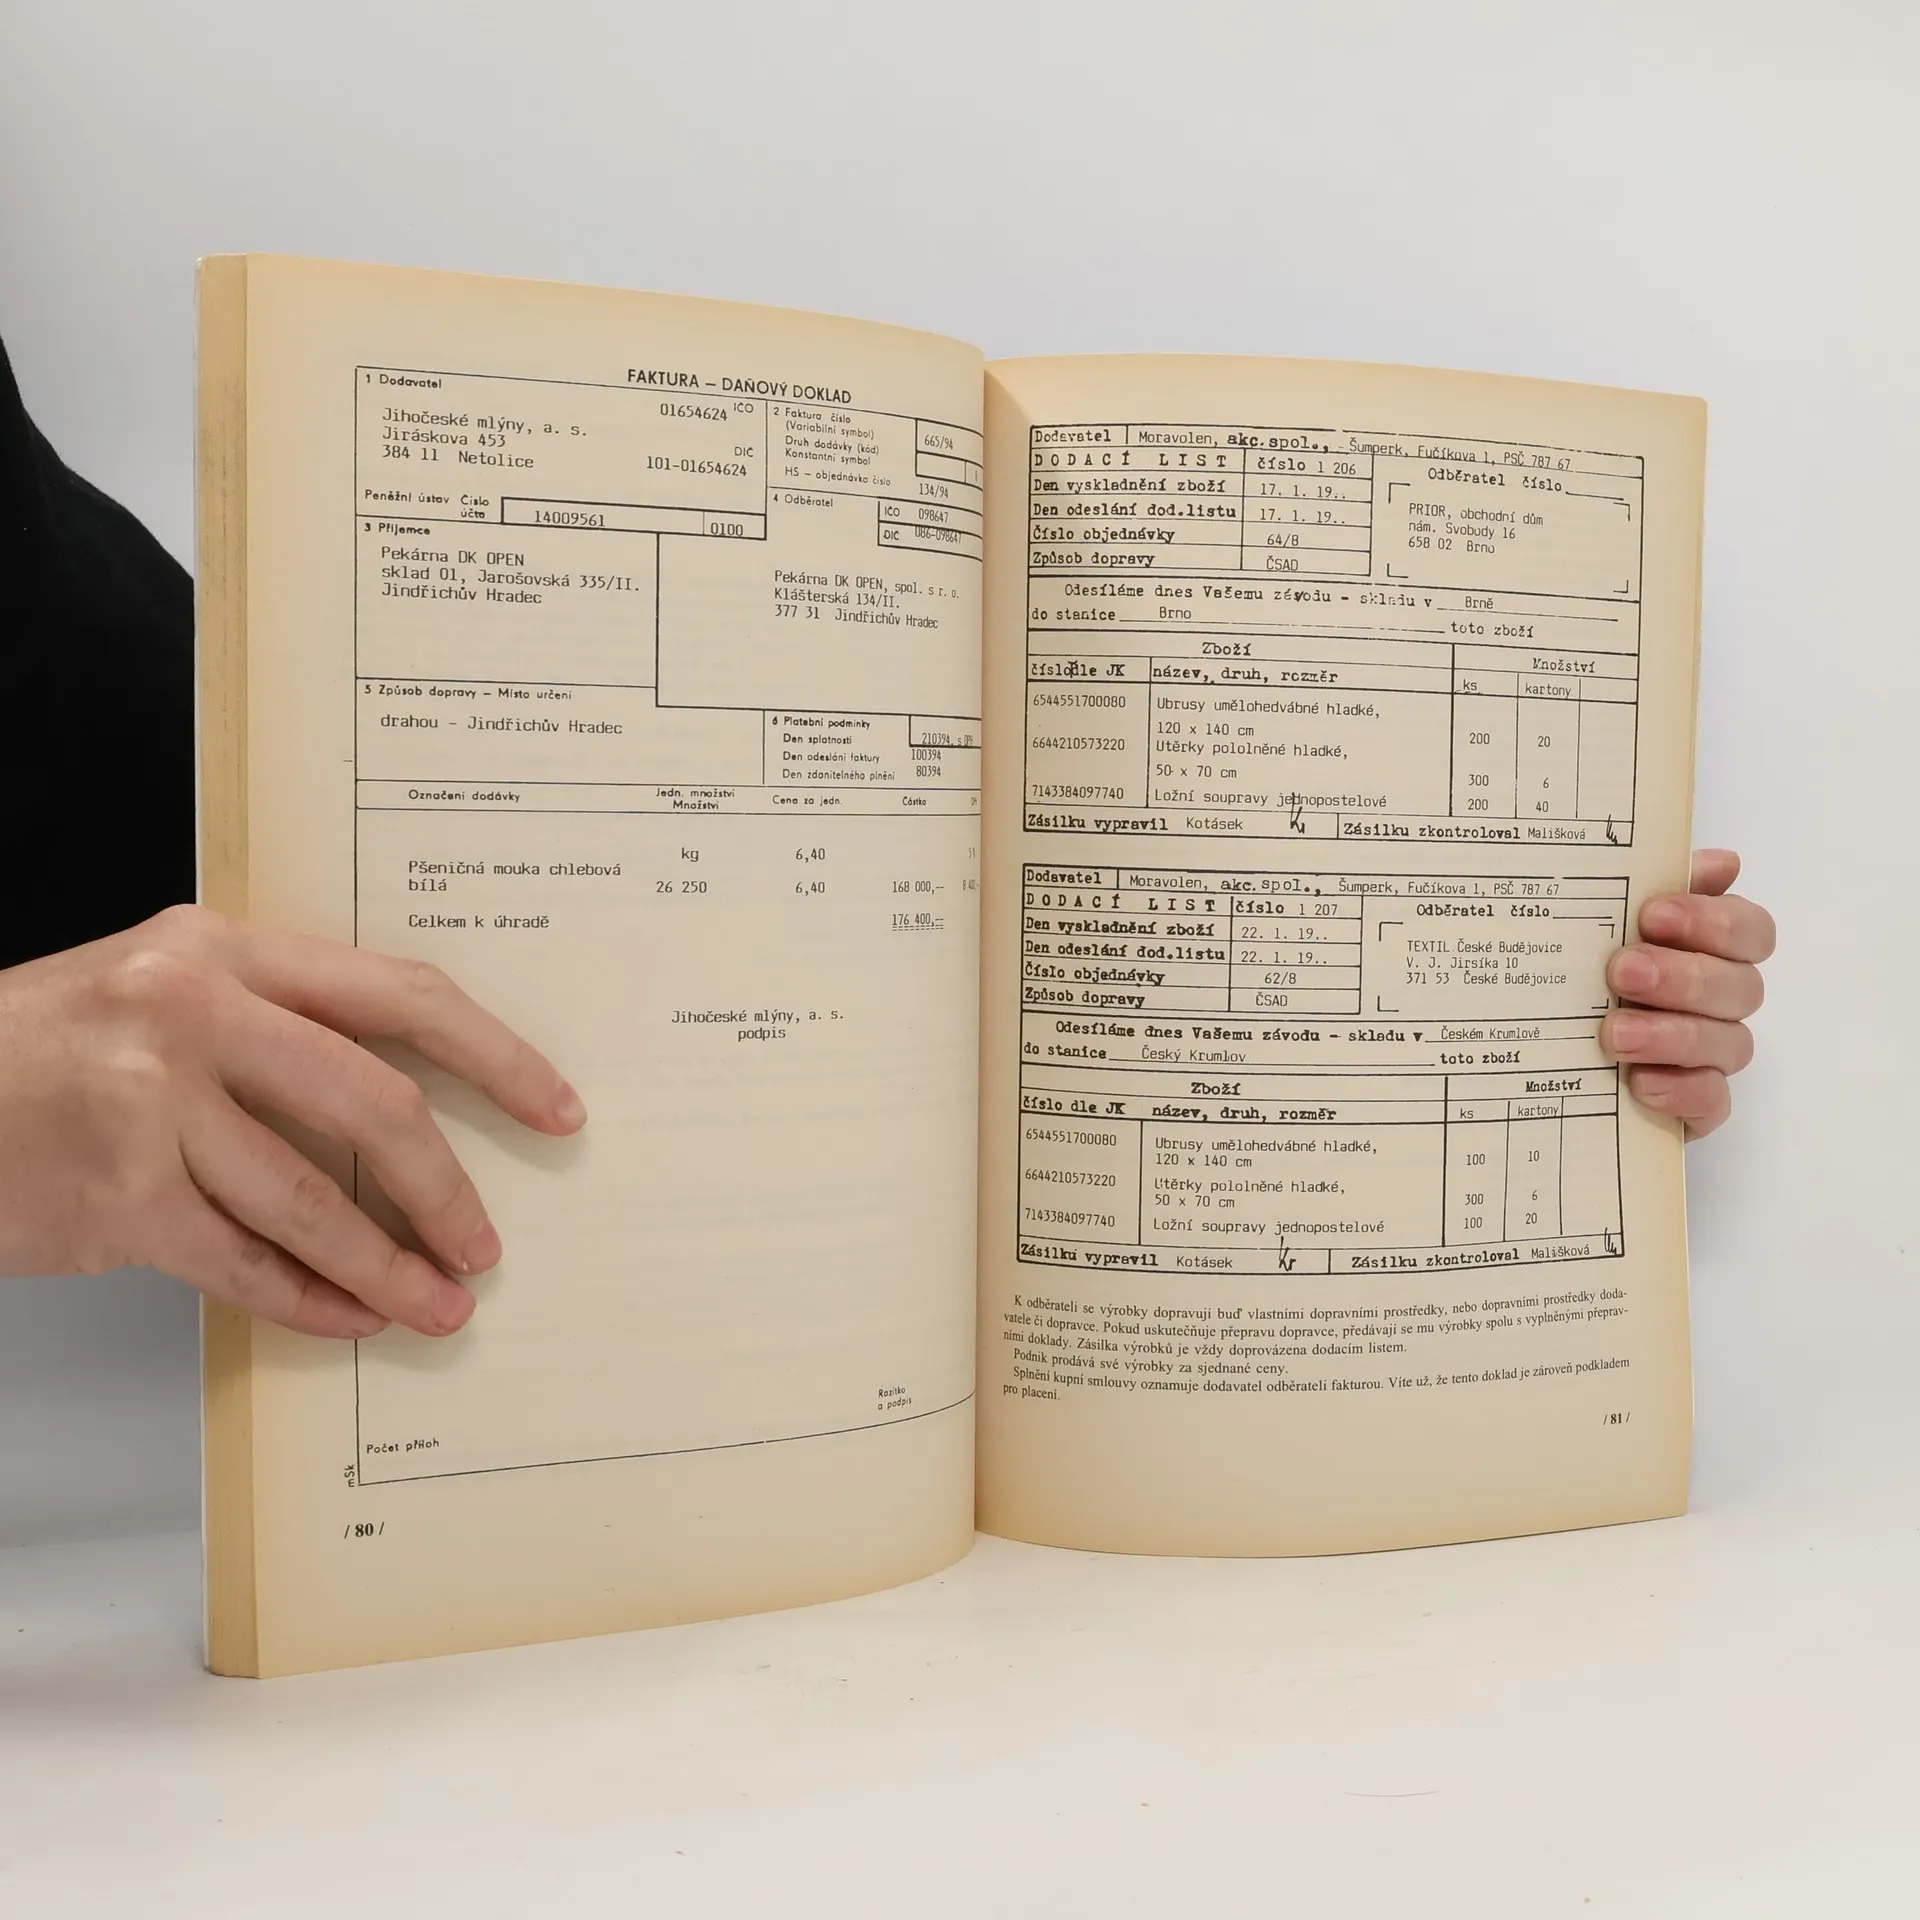 FAKTURA – DAŇOVÝ DOKLAD
1 Dodavatel
01654624 IČO
Jihočeské mlýny, a. s.
Jiráskova 453
384 11 Netolice
DIČ
101-01654624
2 Faktura číslo
(Variabilní symbol)
665/94
Druh dodávky (kód)
Konstantní symbol
HS – objednávka číslo
134/94
Peněžní ústav Číslo
účtu
14009561 0100
4 Odběratel
IČO 098647
DIČ 086-098647
3 Příjemce
Pekárna DK OPEN
sklad 01, Jarošovská 335/II.
Jindřichův Hradec
Pekárna DK OPEN, spol. s r. o.
Klášterská 134/II.
377 31 Jindřichův Hradec
5 Způsob dopravy – Místo určení
drahou – Jindřichův Hradec
6 Platební podmínky
Den splatnosti 210394
Den odeslání faktury 100394
Den zdanitelného plnění 80394
Označení dodávky
Jedn. množství
Množství
Cena za jedn.
Částka
kg 6,40
Pšeničná mouka chlebová
bílá 26 250 6,40 168 000,--
Celkem k úhradě 176 400,--
Jihočeské mlýny, a. s.
podpis
Razítko
a podpis
Počet příloh
mSk
/ 80 /
Dodavatel Moravolen, akc. spol., Šumperk, Fučíkova 1, PSČ 787 67
DODACÍ LIST číslo 1 206
Odběratel číslo
Den vyskladnění zboží 17. 1. 19..
Den odeslání dod.listu 17. 1. 19..
Číslo objednávky 64/8
Způsob dopravy ČSAD
PRIOR, obchodní dům
nám. Svobody 16
658 02 Brno
Odesíláme dnes Vašemu závodu – skladu v Brně
do stanice Brno toto zboží
Zboží Množství
číslo dle JK název, druh, rozměr ks kartony
6544551700080 Ubrusy umělohedvábné hladké,
120 x 140 cm 200 20
6644210573220 Utěrky pololněné hladké,
50 x 70 cm 300 6
7143384097740 Ložní soupravy jednopostelové 200 40
Zásilku vypravil Kotásek Zásilku zkontroloval Mališková
Dodavatel Moravolen, akc. spol., Šumperk, Fučíkova 1, PSČ 787 67
DODACÍ LIST číslo 1 207
Odběratel číslo
Den vyskladnění zboží 22. 1. 19..
Den odeslání dod.listu 22. 1. 19..
Číslo objednávky 62/8
Způsob dopravy ČSAD
TEXTIL České Budějovice
V. J. Jirsíka 10
371 53 České Budějovice
Odesíláme dnes Vašemu závodu – skladu v Českém Krumlově
do stanice Český Krumlov toto zboží
Zboží Množství
číslo dle JK název, druh, rozměr ks kartony
6544551700080 Ubrusy umělohedvábné hladké,
120 x 140 cm 100 10
6644210573220 Utěrky pololněné hladké,
50 x 70 cm 300 6
7143384097740 Ložní soupravy jednopostelové 100 20
Zásilku vypravil Kotásek Zásilku zkontroloval Mališková
K odběrateli se výrobky dopravují buď vlastními dopravními prostředky, nebo dopravními prostředky doda-
vatele či dopravce. Pokud uskutečňuje přepravu dopravce, předávají se mu výrobky spolu s vyplněnými přeprav-
ními doklady. Zásilka výrobků je vždy doprovázena dodacím listem.
Podnik prodává své výrobky za sjednané ceny.
Splnění kupní smlouvy oznamuje dodavatel odběrateli fakturou. Víte už, že tento doklad je zároveň podkladem
pro placení.
/ 81 /